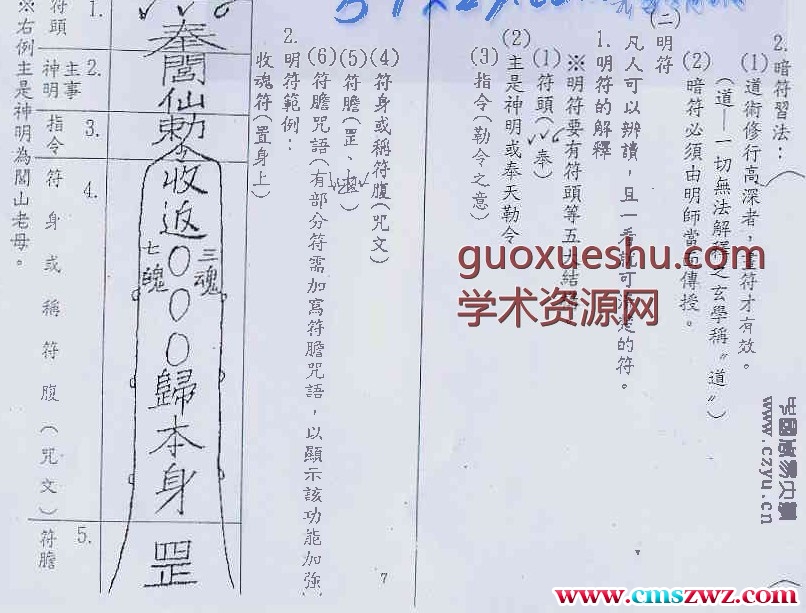 2.暗符習法：
(1)道術修行高深者，畫符才有效。
(道—一切無法解釋之玄學稱〝道〞)
(2)暗符必須由明師當面傳授。
(二)
明符
凡人可以辨識，且一看就可
楚的符。
1.明符的解釋
※明符要有符頭等五大結構
(1)符頭(奉)
(2)主是神明或奉天勒令
(3)指令(勒令之意)
(4)符身或稱符腹(咒文)
(5)符膽(罡、
(6)符膽咒語(有部分符需加寫符膽咒語，以顯示該功能加強)
2.明符範例：
收魂符(置身上)
奉閭仙勅令收返〇〇〇歸本身罡
三魂
七魄
1.
符頭
2.
主事
神明
3.
指令
4.
符身或稱符腹(咒文)
5.
符膽
※右例主是神明為閭山老母。
7
guoxueshu.com
学术资源网
www.czyu.cn
www.cmszwz.com